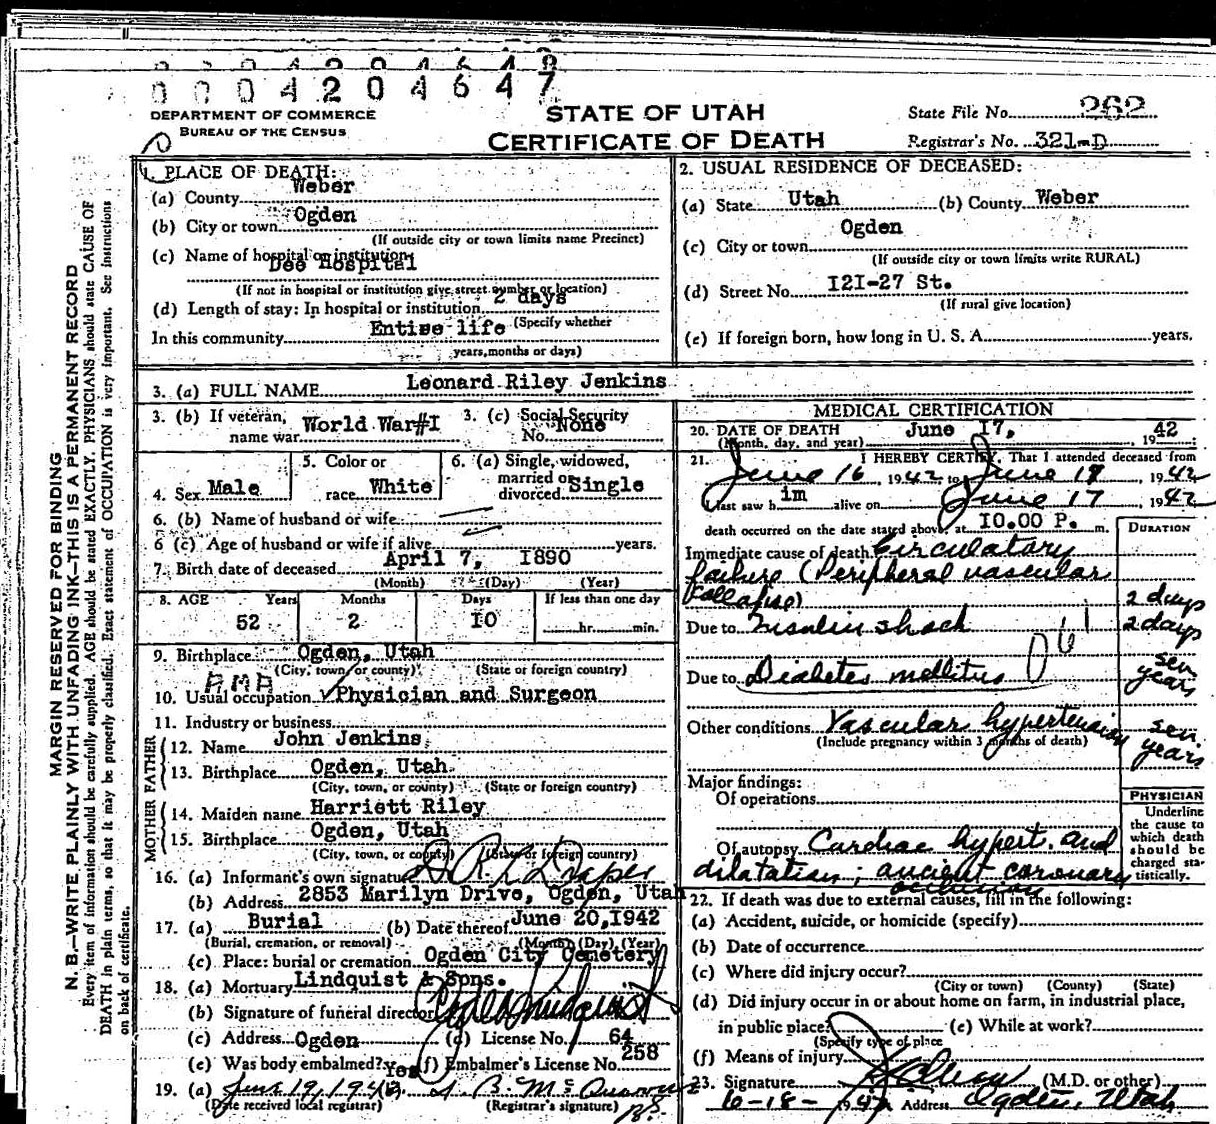 0 0 0 4 2 0 4 6 4 7
DEPARTMENT OF COMMERCE
BUREAU OF THE CENSUS
STATE OF UTAH
CERTIFICATE OF DEATH
State File No. 262
Registrar's No. 321-D
MARGIN RESERVED FOR BINDING
N. B.—WRITE PLAINLY WITH UNFADING INK—THIS IS A PERMANENT RECORD
Every item of information should be carefully supplied. AGE should be stated EXACTLY. PHYSICIANS should state CAUSE OF
DEATH in plain terms, so that it may be properly classified. Exact statement of OCCUPATION is very important. See instructions
on back of certificate.
1. PLACE OF DEATH:
(a) County Weber
(b) City or town Ogden
(If outside city or town limits name Precinct)
(c) Name of hospital or institution:
Dee Hospital
(If not in hospital or institution give street number or location)
(d) Length of stay: In hospital or institution 2 days
(Specify whether
In this community Entire life
years, months or days)
2. USUAL RESIDENCE OF DECEASED:
(a) State Utah (b) County Weber
(c) City or town Ogden
(If outside city or town limits write RURAL)
(d) Street No. I2I-27 St.
(If rural give location)
(e) If foreign born, how long in U. S. A. years.
3. (a) FULL NAME Leonard Riley Jenkins
3. (b) If veteran, name war World War#I
3. (c) Social Security No. None
4. Sex Male
5. Color or race White
6. (a) Single, widowed, married or divorced Single
6. (b) Name of husband or wife
6 (c) Age of husband or wife if alive years.
7. Birth date of deceased April 7, I890
(Month) (Day) (Year)
8. AGE Years Months Days If less than one day
52 2 I0 hr. min.
9. Birthplace Ogden, Utah
(City, town, or county) (State or foreign country)
AMA
10. Usual occupation Physician and Surgeon
11. Industry or business
FATHER
12. Name John Jenkins
13. Birthplace Ogden, Utah
(City, town, or county) (State or foreign country)
MOTHER
14. Maiden name Harriett Riley
15. Birthplace Ogden, Utah
(City, town, or county) (State or foreign country)
16. (a) Informant's own signature Draper
(b) Address 2853 Marilyn Drive, Ogden, Utah
17. (a) Burial (b) Date thereof June 20,1942
(Burial, cremation, or removal) (Month) (Day) (Year)
(c) Place: burial or cremation Ogden City Cemetery
18. (a) Mortuary Lindquist & Sons.
(b) Signature of funeral director
(c) Address Ogden (d) License No. 64
258
(e) Was body embalmed? Yes (f) Embalmer's License No.
19. (a) June 19, 1942
(Date received local registrar) (Registrar's signature)
MEDICAL CERTIFICATION
20. DATE OF DEATH June I7, 1942
(Month, day, and year)
21. I HEREBY CERTIFY, That I attended deceased from
June 16, 1942 to June 17, 1942
I last saw him alive on June 17 1942
death occurred on the date stated above, at I0.00 P. m.
DURATION
Immediate cause of death Circulatory
failure (Peripheral vascular
collapse) 2 days
Due to Insulin shock 2 days
Due to Diabetes mellitus sev. years
061
Other conditions Vascular hypertension sev. years
(Include pregnancy within 3 months of death)
Major findings:
Of operations
Of autopsy Cardiac hypert. and
dilatation; ancient coronary
occlusion
PHYSICIAN
Underline
the cause to
which death
should be
charged sta-
tistically.
22. If death was due to external causes, fill in the following:
(a) Accident, suicide, or homicide (specify)
(b) Date of occurrence
(c) Where did injury occur?
(City or town) (County) (State)
(d) Did injury occur in or about home on farm, in industrial place,
in public place? (e) While at work?
(Specify type of place
(f) Means of injury
23. Signature (M.D. or other)
6-18-1942 Address Ogden, Utah